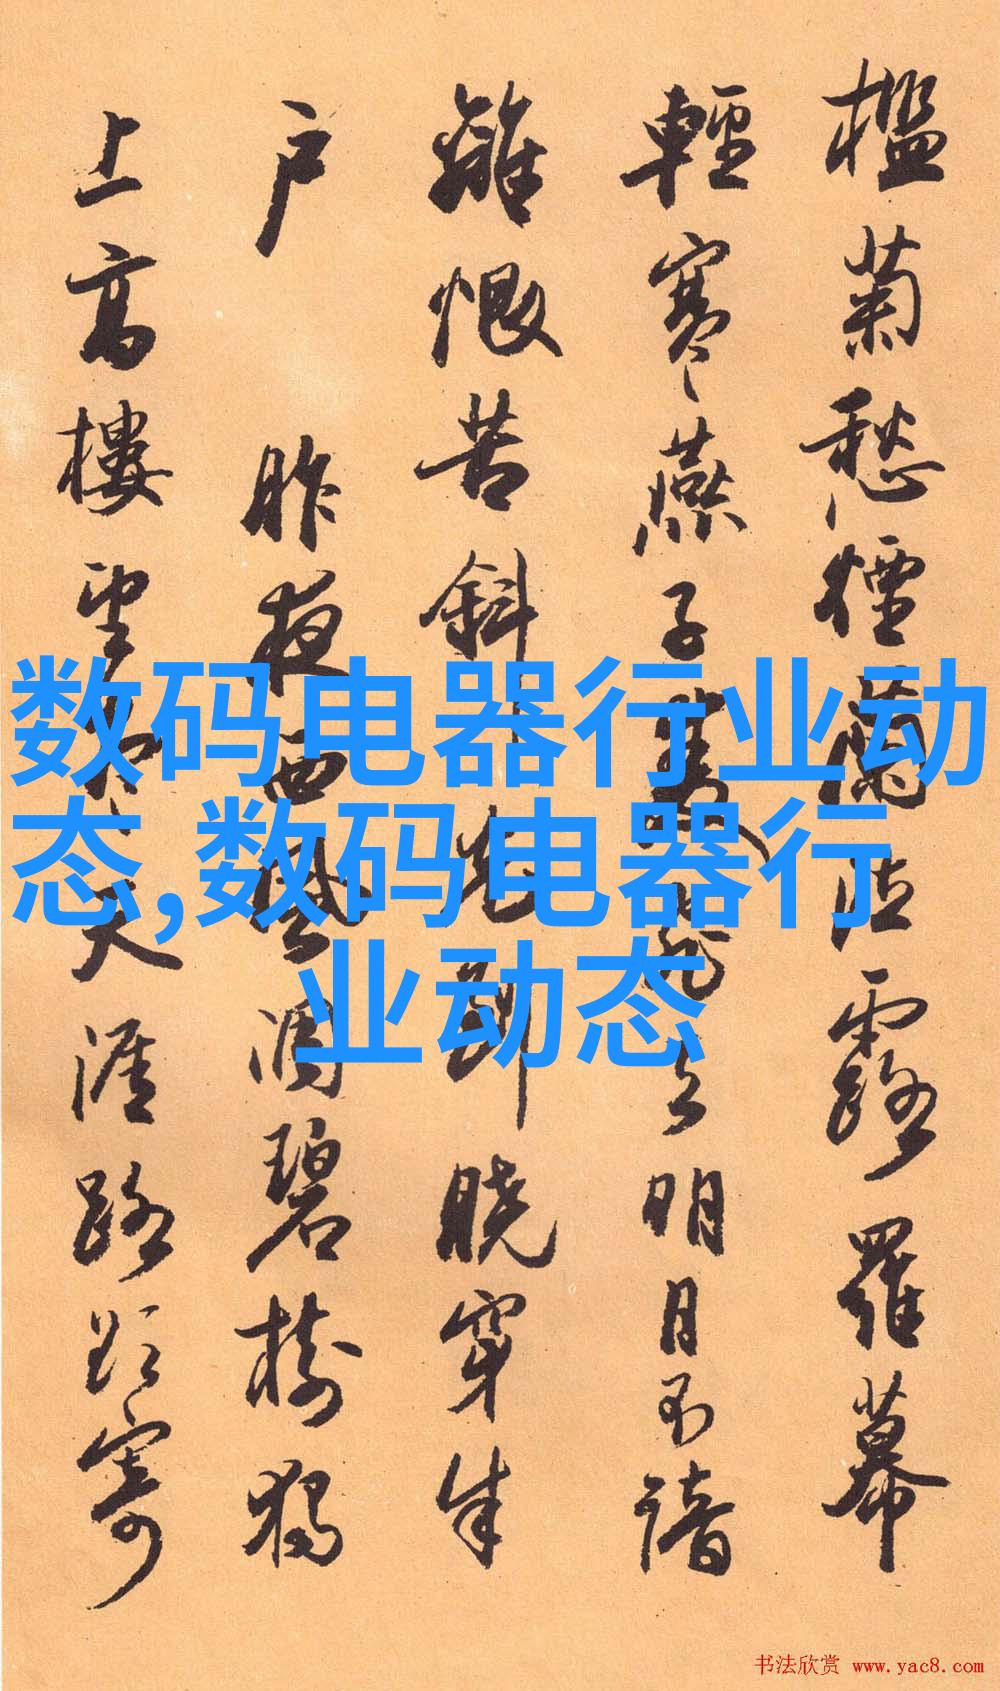 檻菊愁煙蘭泣露羅幕
輕寒燕子雙飛去明月不諳
離恨苦斜光到曉穿朱
户 昨夜西風凋碧樹獨
上高樓望盡天涯路欲寄
数码电器行业动
态,数码电器行
业动态
书法欣赏 www.yac8.com